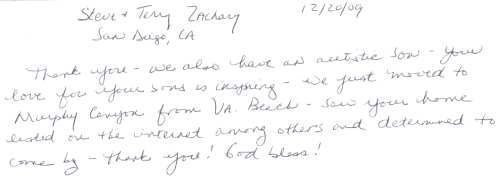 Steve & Terry Zachary 12/20/09
San Diego, CA
Thank you - we also have an autistic son - your
love for your sons is inspiring - we just moved to
Murphy Canyon from VA. Beach - saw your home
listed on the internet among others and determined to
come by - thank you! God bless!